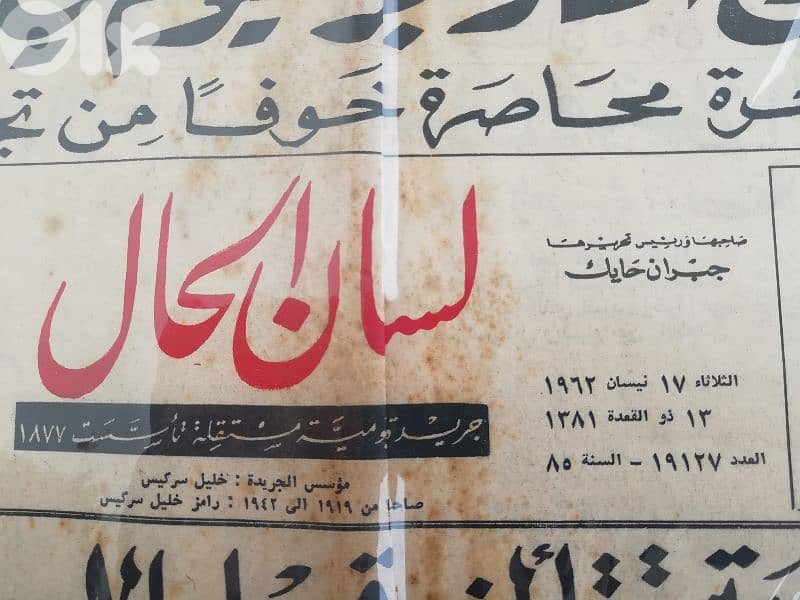 محاصرة خوفا من
لسان الحال
جريدة يومية مستقلة تأسست ١٨٧٧
مؤسس الجريدة : خليل سركيس
صاحبها من ١٩١٩ الى ١٩٤٢ : رامز خليل سركيس
صاحبها ورئيس تحريرها
جبران حايك
الثلاثاء ١٧ نيسان ١٩٦٢
١٣ ذو القعدة ١٣٨١
العدد ١٩١٢٧ - السنة ٨٥
olx